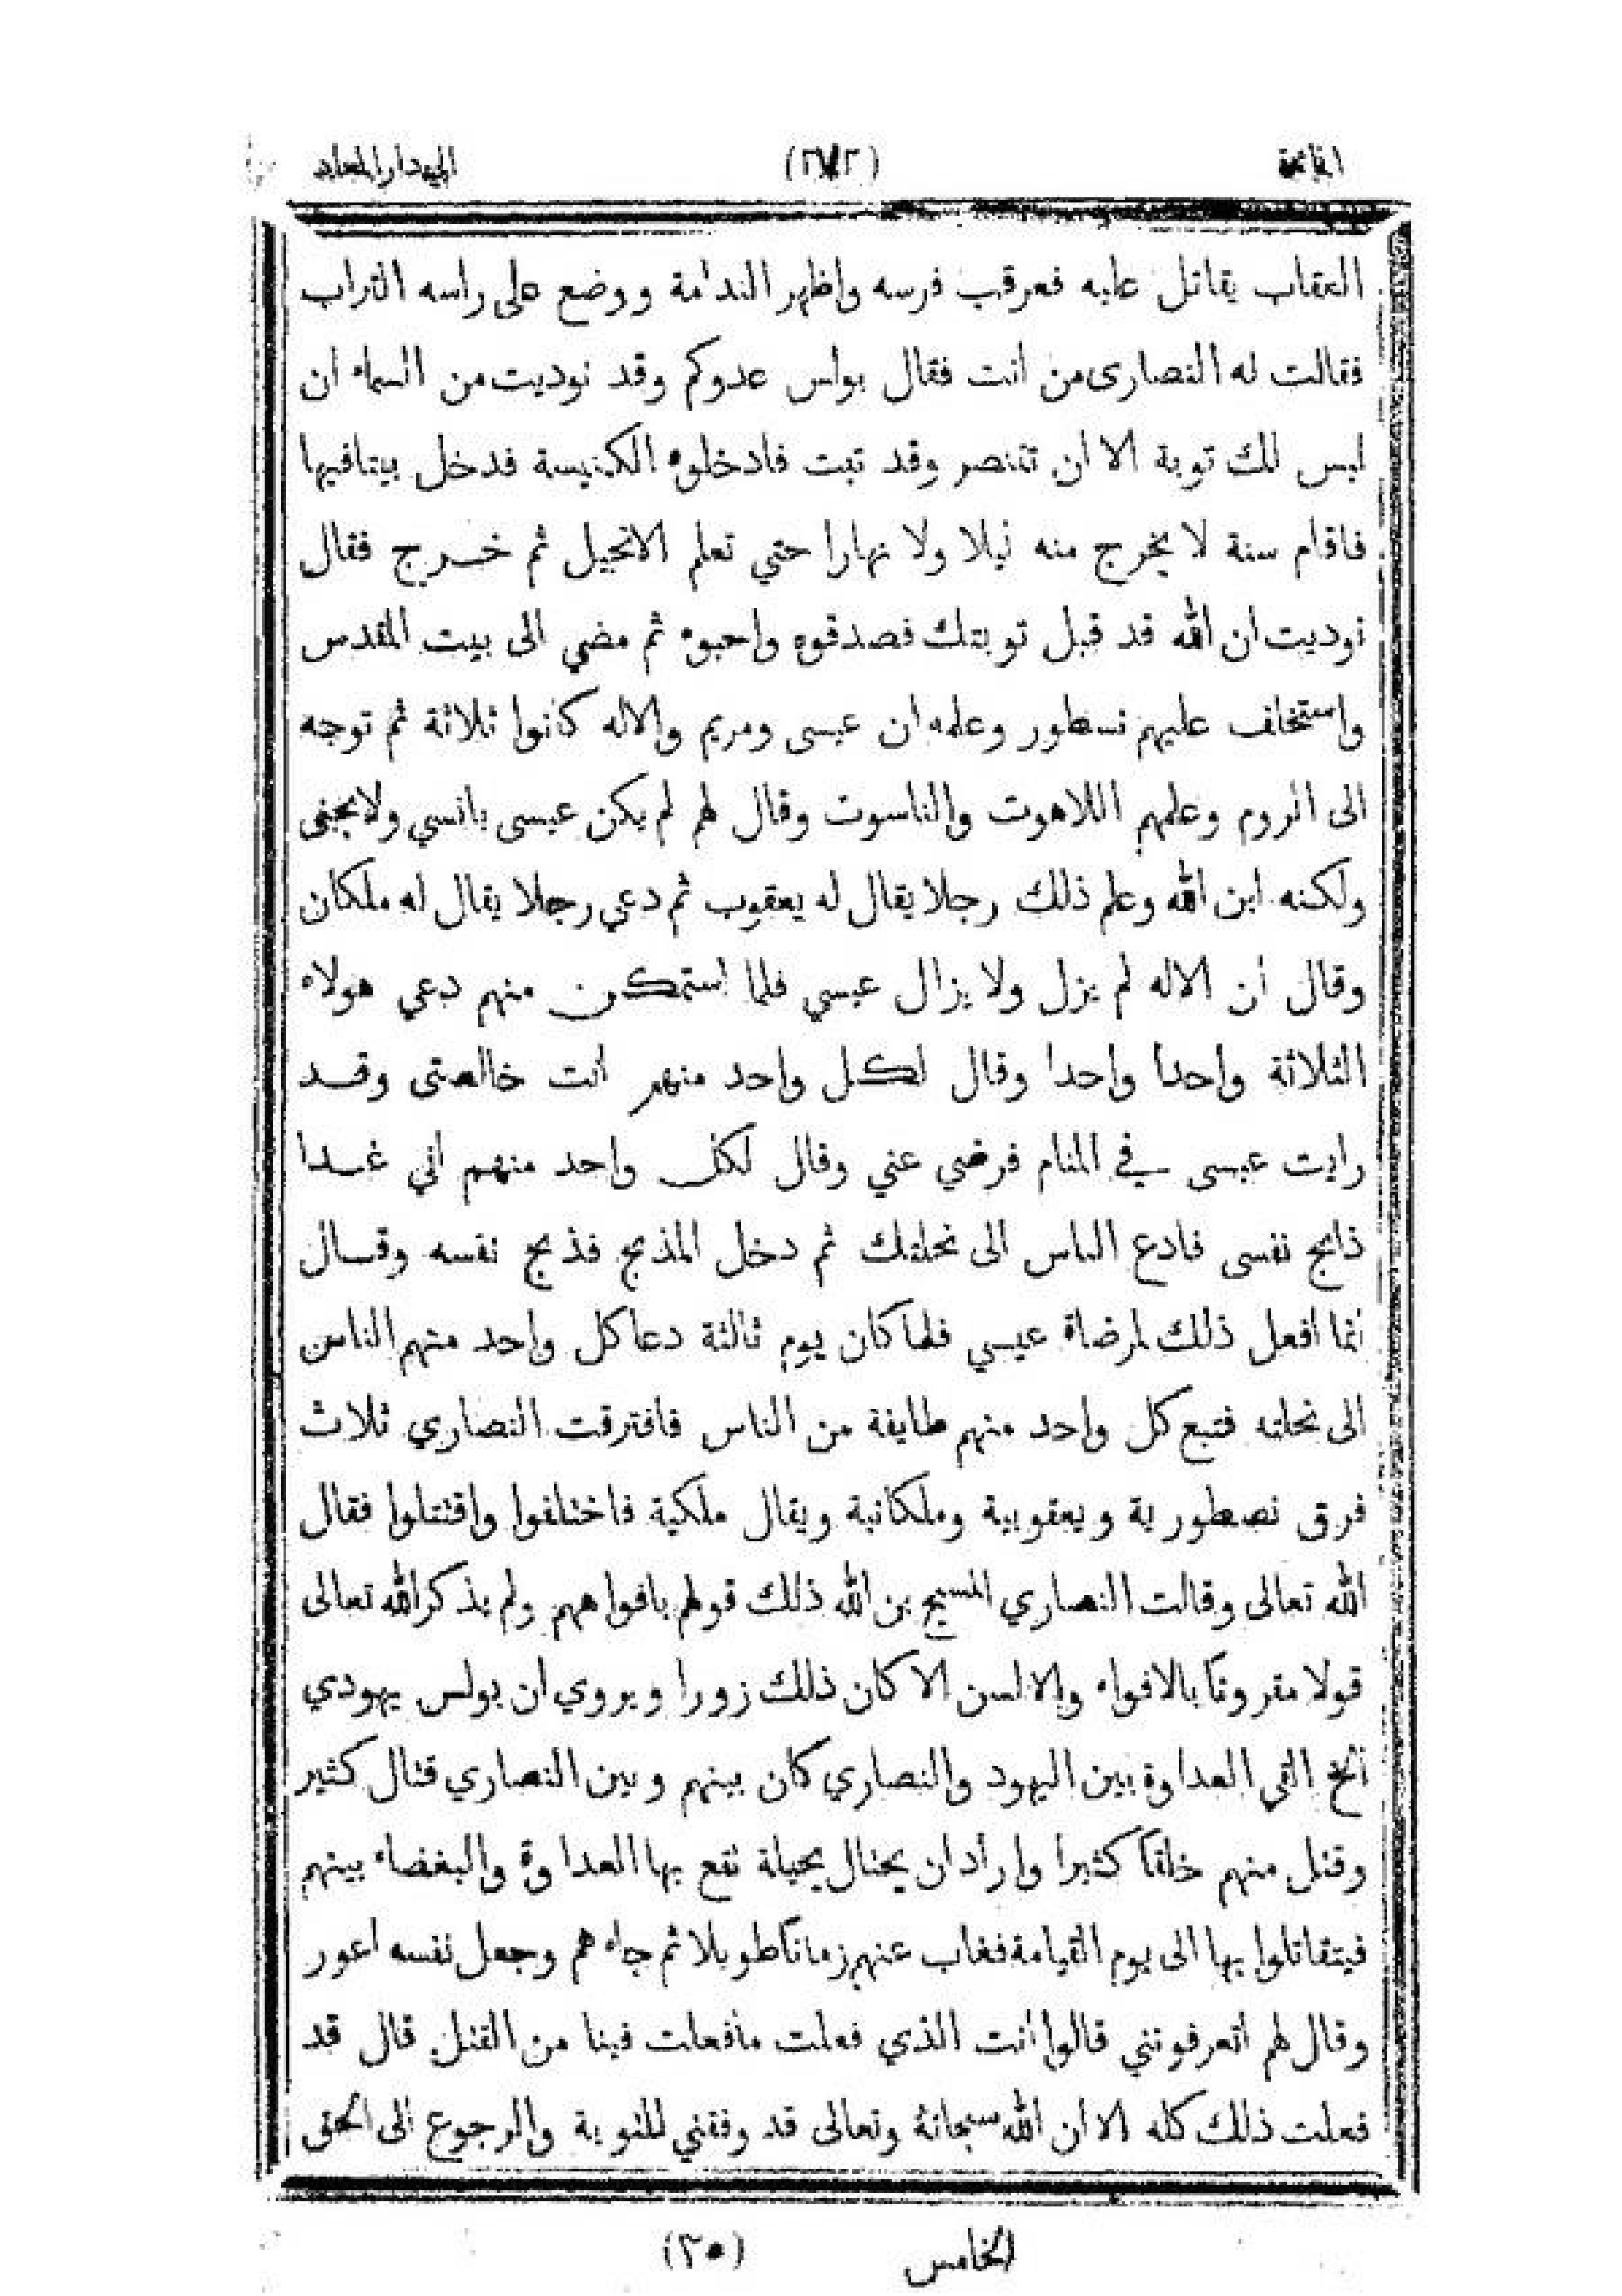 الخاتمة (٢٧٢) اليهود ار المعابد
العقاب يقاتل عليه فعرقب فرسه واظهر الندامة ووضع على راسه التراب
فقالت له النصارى من انت فقال بولس عدوكم وقد نوديت من السماء ان
ليس لك توبة الا ان تتنصر وقد تبت فادخلوه الكنيسة فدخل بيتا فيها
فاقام سنة لا يخرج منه ليلا ولا نهارا حتي تعلم الانجيل ثم خرج فقال
نوديت ان الله قد قبل توبتك فصدقوه واحبوه ثم مضي الى بيت المقدس
واستخلف عليهم نسطور وعلمه ان عيسى ومريم والاله كانوا ثلاثة ثم توجه
الى الروم وعلمهم اللاهوت والناسوت وقال لهم لم يكن عيسى بانسي ولا بجني
ولكنه ابن الله وعلم ذلك رجلا يقال له يعقوب ثم دعي رجلا يقال له ملكان
وقال ان الاله لم يزل ولا يزال عيسي فلما استمكن منهم دعي هولاء
الثلاثة واحدا واحدا وقال لكل واحد منهم انت خالصتى وقد
رايت عيسى في المنام فرضي عني وقال لكل واحد منهم اني غدا
ذابح نفسى فادع الناس الى نحلتك ثم دخل المذبح فذبح نفسه وقال
انما افعل ذلك لمرضاة عيسي فلما كان يوم ثالثة دعا كل واحد منهم الناس
الى نحلته فتبع كل واحد منهم طايفة من الناس فافترقت النصاري ثلاث
فرق نصطورية ويعقوبية وملكانية ويقال ملكية فاختلفوا واقتتلوا فقال
الله تعالى وقالت النصاري المسيح بن الله ذلك قولهم بافواههم ولم يذكر الله تعالى
قولا مقرونا بالافواه والالسن الا كان ذلك زورا ويروي ان بولس يهودي
الخ القي العداوة بين اليهود والنصاري كان بينهم وبين النصاري قتال كثير
وقتل منهم خلقا كثيرا واراد ان يحتال بحيلة تقع بها العداوة والبغضاء بينهم
فيتقاتلوا بها الى يوم القيامة فغاب عنهم زمانا طويلا ثم جاءهم وجعل نفسه اعور
وقال لهم اتعرفونني قالوا انت الذي فعلت ما فعلت فينا من القتل قال قد
فعلت ذلك كله الا ان الله سبحانه وتعالى قد وفقني للتوبة والرجوع الى الحق
الخامس (٣٥)